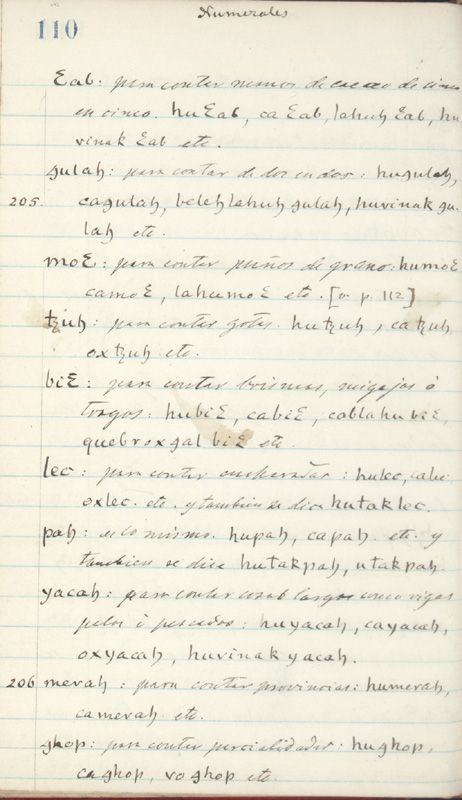 Numerales
110
Ɛab: para contar manos de cacao de cinco
en cinco. huƐab, caƐab, lahuh Ɛab, hu
vinak Ɛab etc.
gulah: para contar de dos en dos: hugulah,
205. cagulah, belehlahuh gulah, huvinak gu-
lah etc.
moƐ: para contar puños de grano: humoƐ
camoƐ, lahumoƐ etc. [v. p. 112]
tzuh: para contar gotas. hutzuh, catzuh,
oxtzuh etc.
biƐ: para contar briznas, migajas ó
tragos: hubiƐ, cabiƐ, cablahubiƐ,
quebroxgal biƐ etc.
lec: para contar cucharadas: hulec, calec
oxlec. etc. y tambien se dice hutaklec.
pah: es lo mismo. hupah, capah. etc. y
tambien se dice hutakpah, utakpah.
yacah: para contar cosas largas como vigas
palos ó pescados: huyacah, cayacah,
oxyacah, huvinak yacah.
206 merah: para contar provincias: humerah,
camerah etc.
ghop: para contar parcialidades: hughop,
caghop, voghop etc.